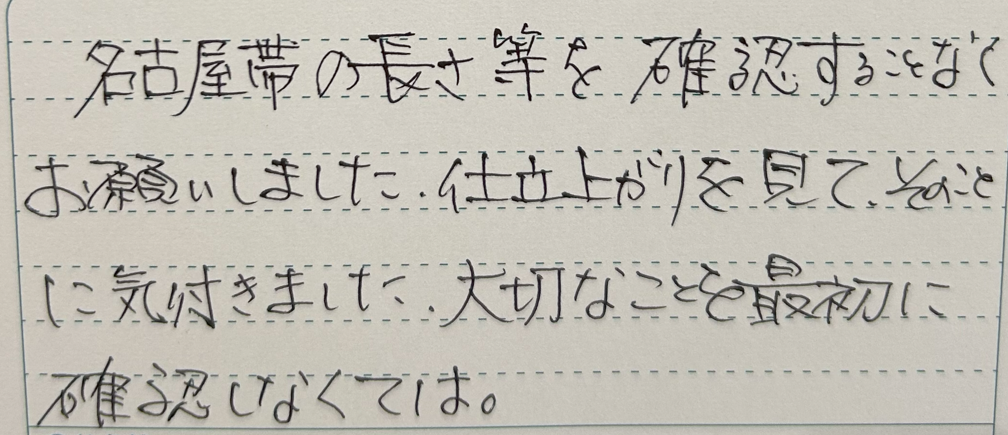 名古屋帯の長さ等を確認することなく
お願いしました.仕立上がりを見て.そのこと
に気付きました.大切なことを最初に
確認しなくては。